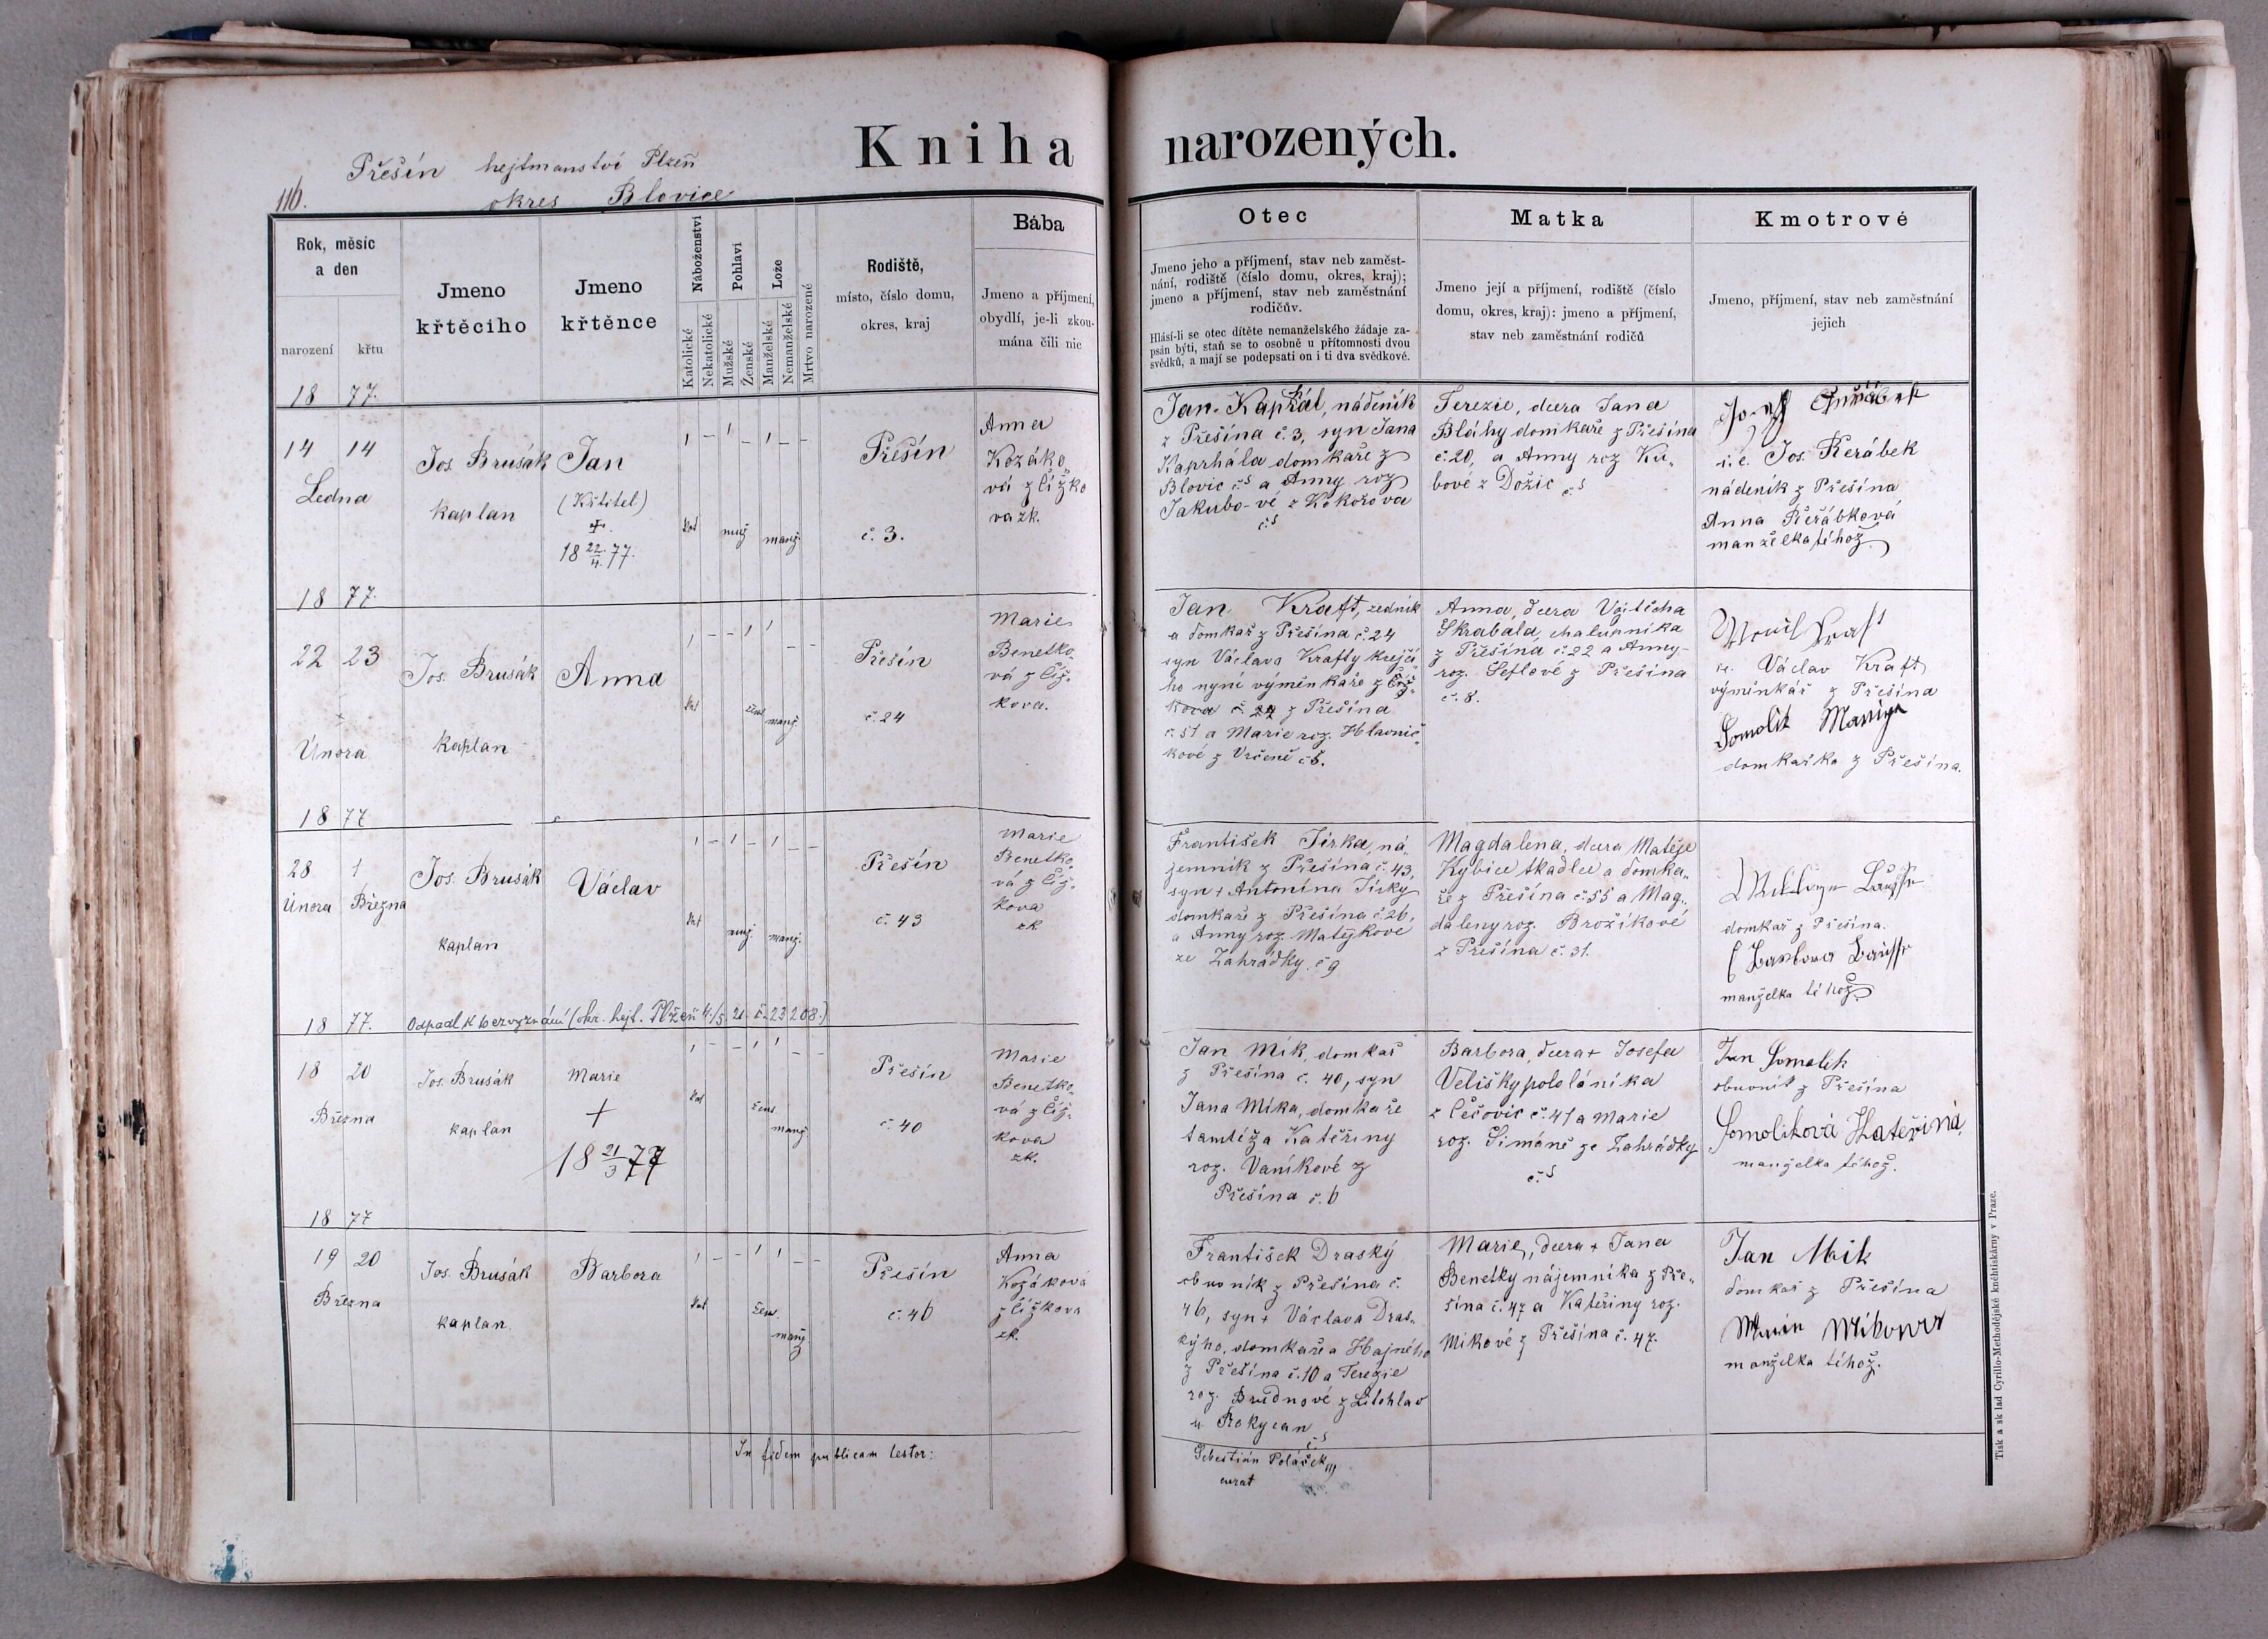 Kniha narozených.
Přešín hejtmanství Plzeň
116. okres Blovice
Rok, měsíc
a den
narození křtu
Jmeno
křtěciho
Jmeno
křtěnce
Náboženství
Katolické
Nekatolické
Pohlaví
Mužské
Ženské
Lože
Manželské
Nemanželské
Mrtvo narozené
Rodiště,
místo, číslo domu,
okres, kraj
Bába
Jmeno a příjmení,
obydlí, je-li zkou-
mána čili nic
Otec
Jmeno jeho a příjmení, stav neb zaměst-
nání, rodiště (číslo domu, okres, kraj);
jmeno a příjmení, stav neb zaměstnání
rodičův.
Hlásí-li se otec dítěte nemanželského žádaje za-
psán býti, staň se to osobně u přítomnosti dvou
svědků, a mají se podepsati on i ti dva svědkové.
Matka
Jmeno její a příjmení, rodiště (číslo
domu, okres, kraj): jmeno a příjmení,
stav neb zaměstnání rodičů
Kmotrové
Jmeno, příjmení, stav neb zaměstnání
jejich
18 77.
14 14
Ledna
Jos. Brusák
kaplan
Jan
(Křtitel)
+
18 22/4. 77.
kat
muž
manž.
Přešín
č. 3.
Anna
Kozáko
vá z Čížko
va zk.
Jan Kaprhál, nádeník
z Přešína č. 3, syn Jana
Kaprhála domkaře z
Blovic čs a Anny roz
Jakubo-vé z Kokořova
čs
Terezie, dcera Jana
Bláhy domkaře z Přešína
č. 20, a Anny roz Ku-
bové z Dožic čs
i. e. Jos. Řeřábek
nádeník z Přešína
Anna Řeřábková
manželka téhož
18 77.
22 23
Února
Jos. Brusák
kaplan
Anna
kat
žens
manž.
Přešín
č. 24
Marie
Benetko
vá z Číž-
kova.
Jan Kraft, zedník
a domkař z Přešína č. 24
syn Václava Krafty krejčí
ho nyní výměnkaře z Číž-
kova č. 24 z Přešína
č. 51 a Marie roz. Hlavnič-
kové z Vrčeně č 5.
Anna, dcera Vojtěcha
Škrabála, chalupníka
z Přešína č. 22 a Anny
roz. Šeflové z Přešína
č. 8.
Václav Kraft
výměnkář z Přešína
Somolik
domkařka z Přešína.
18 77
28 1
Února Března
Jos. Brusák
kaplan
Václav
kat
muž.
manž.
Přešín
č. 43
Marie
Benetko
vá z Číž-
kova
zk
František Jírka, ná-
jemník z Přešína č. 43,
syn + Antonína Jírky
domkaře z Přešína č. 26,
a Anny roz. Matějkové
ze Zahrádky. č 9
Magdalena, dcera Matěje
Kybice tkadlce a domka-
ře z Přešína č. 55 a Mag-
daleny roz. Brožíkové
z Přešína č. 31.
domkař z Přešína.
manželka téhož
Odpadl k bezvyznání (okr. hejt. Plzeň 4./5. 21. č. 23208.)
18 77.
18 20
Března
Jos. Brusák
kaplan
Marie
+
18 21/3 77
kat
žens
manž.
Přešín
č. 40
Marie
Benetko-
vá z Číž-
kova
zk.
Jan Mik, domkař
z Přešína č. 40, syn
Jana Mika, domkaře
tamtéž a Kateřiny
roz. Vaníkové z
Přešína č. 6
Barbora, dcera + Josefa
Velišky pololáníka
z Čečovic č. 41 a Marie
roz. Šimáně ze Zahrádky
čs
Jan Somolik
obuvník z Přešína
Somoliková Kateřina,
manželka téhož.
18 77
19 20
Března
Jos. Brusák
kaplan.
Barbora
kat
žens.
manž
Přešín
č. 46
Anna
Kozáková
z Čížkova
zk.
František Draský
obuvník z Přešína č.
46, syn + Václava Dras-
kýho, domkaře a Hajného
z Přešína č. 10 a Terezie
roz. Brudnové z Litohlav
u Rokycan
čs
Marie, dcera + Jana
Benetky nájemníka z Pře-
šína č. 47 a Kateřiny roz.
Mikové z Přešína č. 47.
Jan Mik
domkař z Přešína
manželka téhož.
In fidem publicam testor:
Sebestián Poláček
curat
Tisk a sklad Cyrillo-Methodějské kněhtiskárny v Praze.